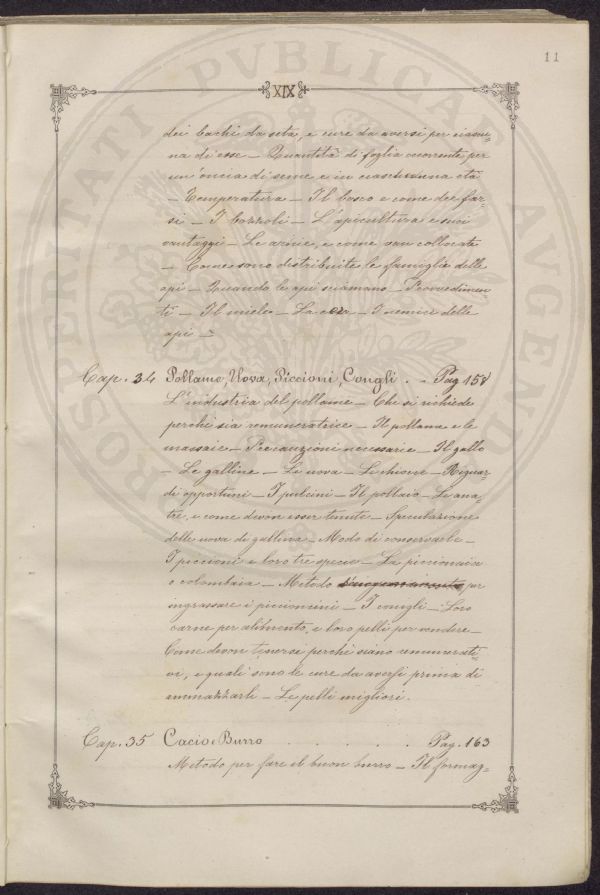 11
XIX
dei bachi da seta, e cure da aversi per ciascu=
na di esse — Quantità di foglia occorrente per
un'oncia di seme e in ciascheduna età
— Temperatura — Il bosco e come dee far=
si — I bozzoli — L'apicultura e suoi
vantaggi — Le arnie, e come van collocate
— Come sono distribuite le famiglie delle
api — Quando le api sciamano — Provvedimen=
ti — Il miele — La cera — I nemici delle
api —
Cap. 34 Pollame, Uova, Piccioni, Conigli . . Pag 158
L'industria del pollame — Che si richiede
perchè sia remuneratrice — Il pollame e le
massaie — Precauzioni necessarie — Il gallo
— Le galline — Le uova — Le chiocce — Riguar=
di opportuni — I pulcini — Il pollaio — Le ana=
tre, e come devon esser tenute — Speculazione
delle uova di gallina — Modo di conservarle —
I piccioni e loro tre specie — La piccionaia
o colombaia — Metodo per
ingrassare i piccioncini — I conigli — Loro
carne per alimento, e loro pelli per vendere —
Come devon tenersi perchè siano remunerati=
vi, e quali sono le cure da aversi prima di
ammazzarli — Le pelli migliori.
Cap. 35 Cacio e Burro . . . . . Pag. 163
Metodo per fare il buon burro — Il formag=
PROSPERITATI PVBLICAE AVGENDAE